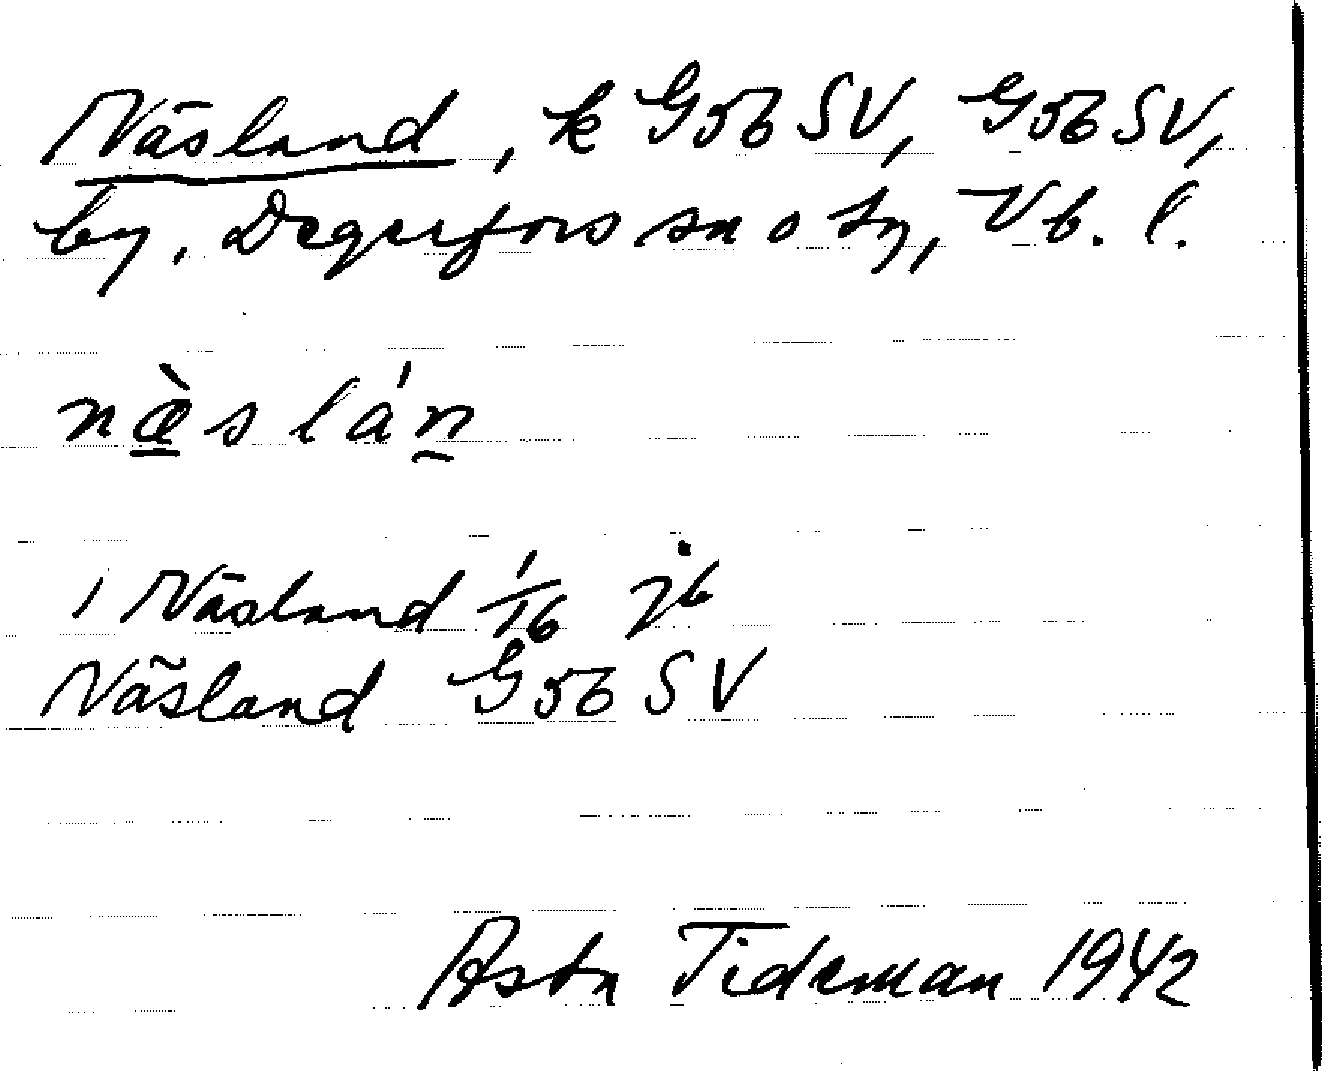 Näsland, k G56 SV, G56 SV,
by, Degerfors sn o tg, Vb. l.
næ̀slán
i Näsland 1/16 jb
Näsland G56 SV
Asta Tideman 1942